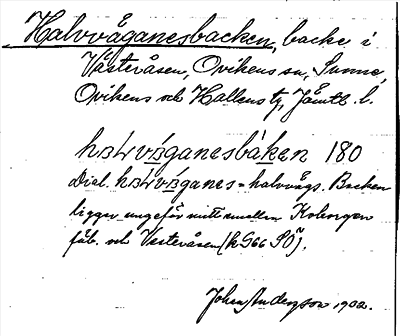 Halvvåganesbacken, backe i
Västeråsen, Ovikens sn, Sunne,
Ovikens och Hallens tg, Jämtl. l.
hɐLvɐ́ganesbàken 180
Dial. hɐLvɐganes = halvvägs. Backen
ligger ungefär mitt emellan Koborgen
fäb. och Västeråsen (k G66 SÖ).
Johan Andersson 1902.